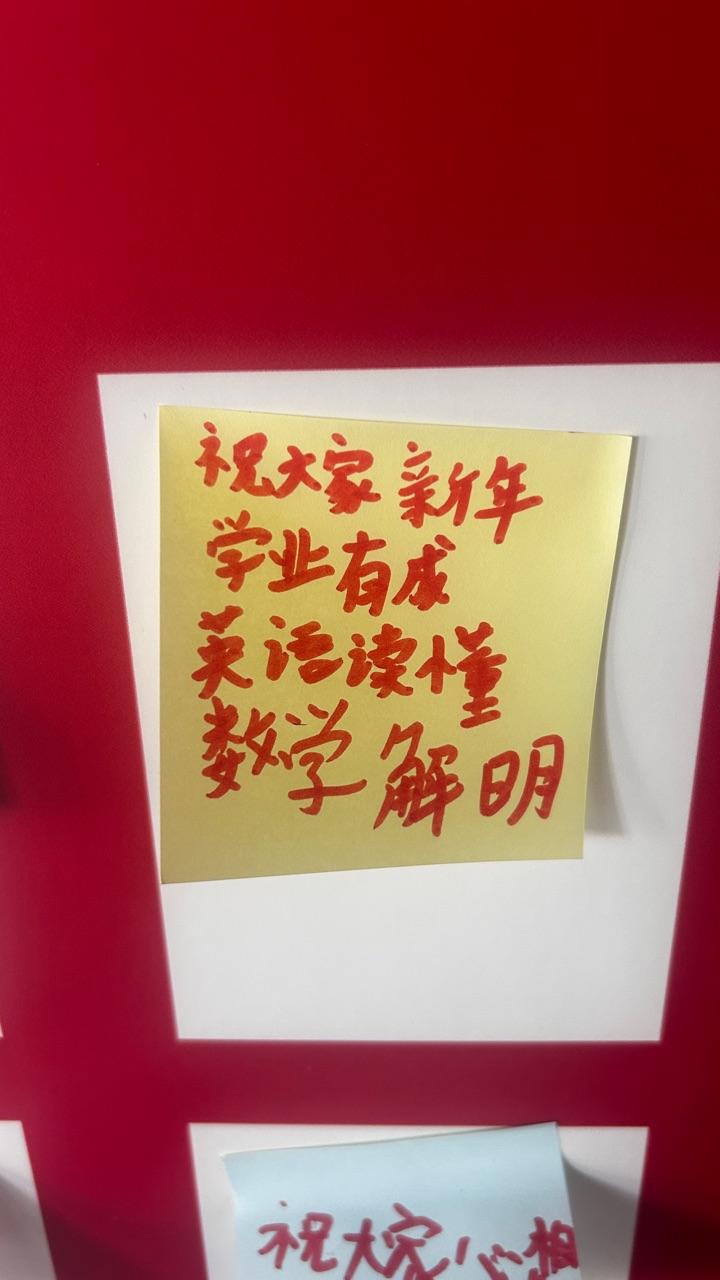 祝大家新年
学业有成
英语读懂
数学解明
祝大家心想